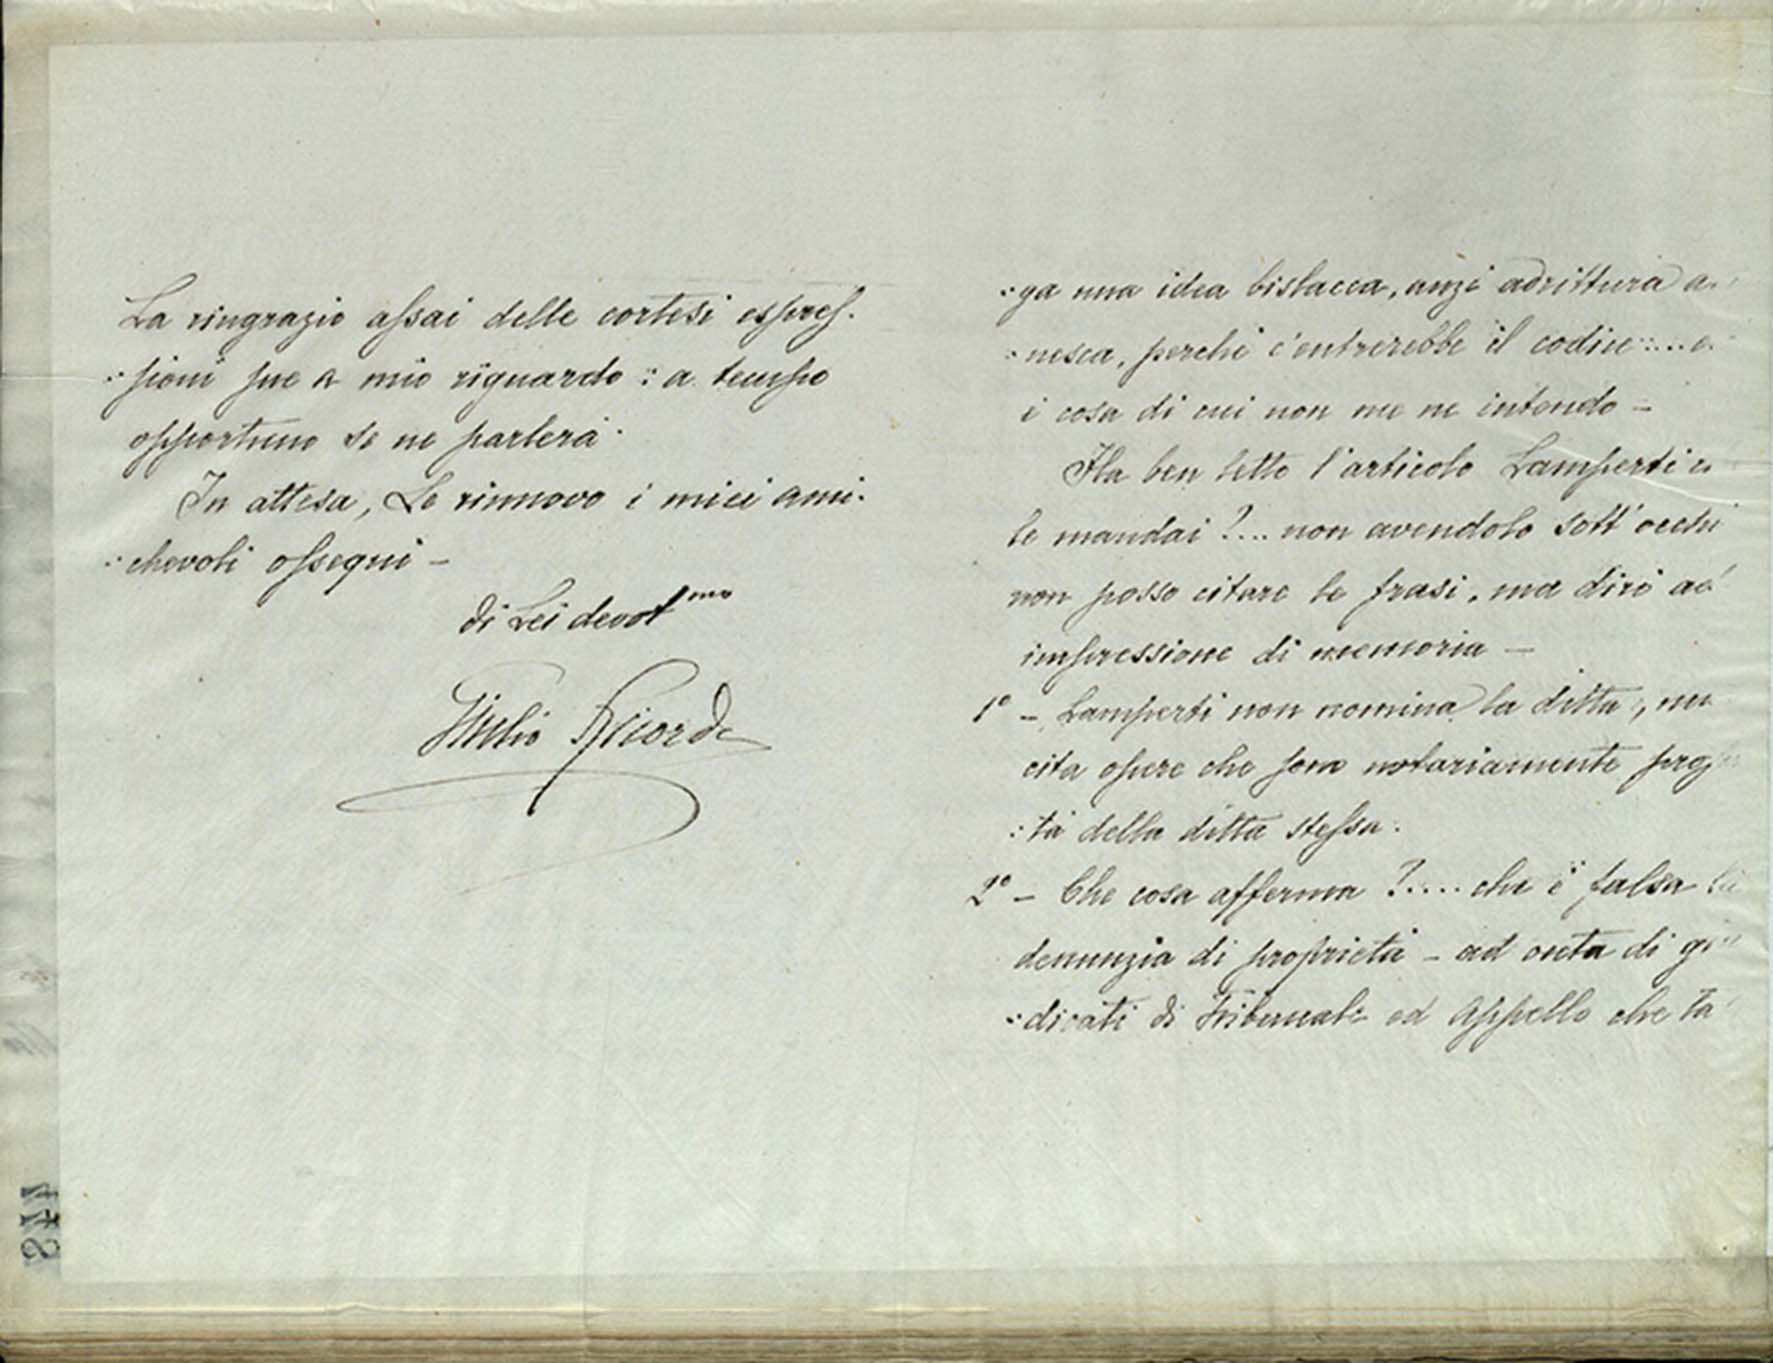 La ringrazio assai delle cortesi espres-
:sioni pue a mio riguardo : a tempo
opportuno se ne parlerà.
In attesa, Le rinnovo i miei ami-
:chevoli ossequi -
di Lei devotmo
Giulio Ricordi
:ga una idea bislacca, anzi adrittura
:nesca, perchè c'entrerebbe il codice : ....
è cosa di cui non me ne intendo -
Ha ben letto l'articolo Lamperti
le mandai ?... non avendolo sott'occhi
non posso citare le frasi, ma dirò ad
impressione di memoria -
1º - Lamperti non nomina la ditta, ma
cita opere che sono notoriamente
:tà della ditta stessa.
2º - Che cosa afferma ?.... che è falsa la
denunzia di proprietà - ad onta di
:dicati di Tribunale ed Appello che
874